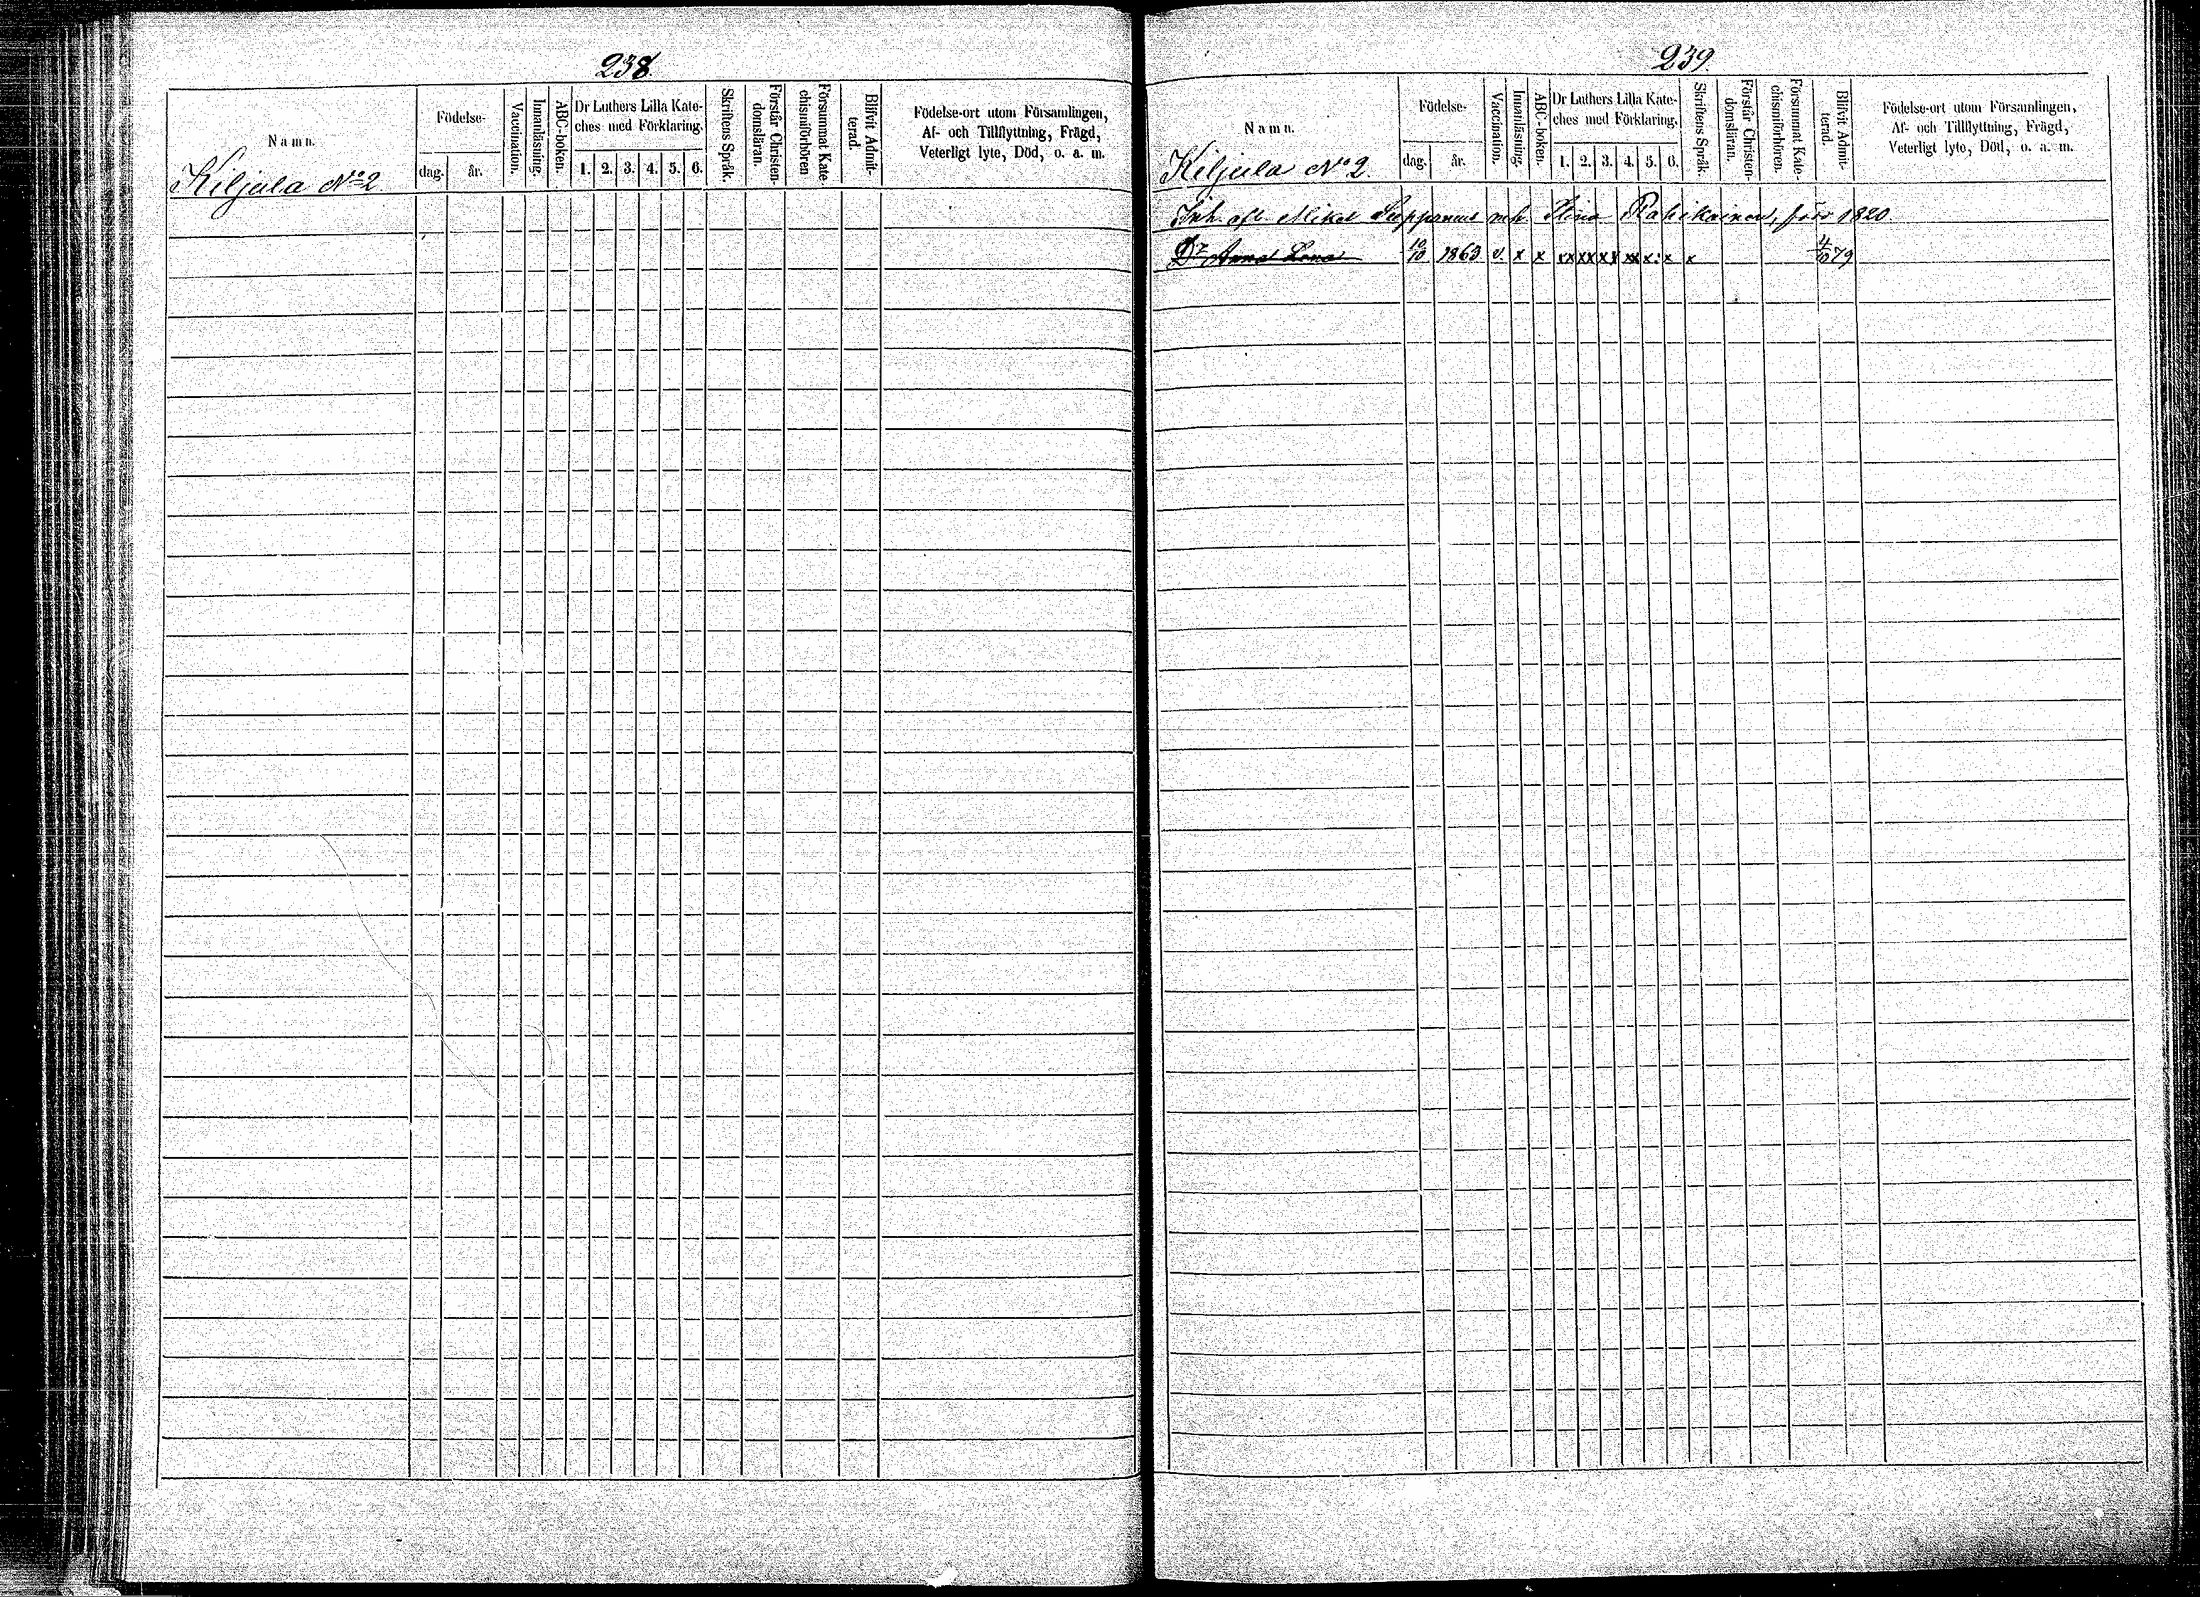 238
Namn.
Födelse-
dag.
år.
Vaccination.
Innanläsning.
ABC-boken.
Dr Luthers Lilla Kate-
ches med Förklaring.
1. 2. 3. 4. 5. 6.
Skriftens Språk.
Förstår Christen-
domsläran.
Försummat Kate-
chismiförhören
Blifvit Admit-
terad.
Födelse-ort utom Församlingen,
Af- och Tillflyttning, Frägd,
Veterligt lyte, Död, o. a. m.
Kiljula No 2
239.
Namn.
Födelse-
dag.
år.
Vaccination.
Innanläsning.
ABC-boken.
Dr Luthers Lilla Kate-
ches med Förklaring.
1. 2. 3. 4. 5. 6.
Skriftens Språk.
Förstår Christen-
domsläran.
Försummat Kate-
chismiförhören.
Blifvit Admit-
terad.
Födelse-ort utom Församlingen,
Af- och Tillflyttning, Frägd,
Veterligt lyte, Död, o. a. m.
Kiljula No 2.
Inh. afl. Mikel Seppänens enk. Stina Rahikainen, född 1820.
Dr Anna Lena 10/10 1863 v. x x xx xx xx xx x: x x 4/10 79